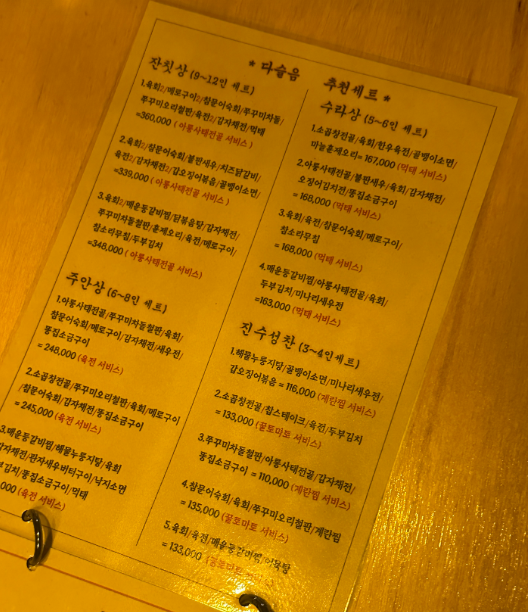 ★ 다슬음 추천세트 ★
잔칫상 (9~12인 세트)
1.육회2/메로구이2/참문어숙회/쭈꾸미차돌/
쭈꾸미오리철판/육전2/감자채전/먹태
=360,000 (아롱사태전골 서비스)
2.육회2/참문어숙회/불판새우/치즈닭갈비/
육전2/감자채전2/갑오징어볶음/골뱅이소면/
=339,000 (아롱사태전골 서비스)
3.육회2/매운등갈비찜/닭볶음탕/감자채전/
쭈꾸미차돌철판/훈제오리/육전/메로구이/
참소라무침/두부김치
=348,000 (아롱사태전골 서비스)
주안상 (6~8인 세트)
1.아롱사태전골/쭈꾸미차돌철판/육회/
참문어숙회/메로구이/감자채전/새우전/
통집소금구이
= 248,000 (육전 서비스)
2.소곱창전골/쭈꾸미오리철판/육회/메로구이
/참문어숙회/감자채전/통집소금구이
= 245,000 (육전 서비스)
3.매운등갈비찜/해물누룽지탕/육회
감자채전/관자새우버터구이/낙지소면
김치/통집소금구이/먹태
000 (육전 서비스)
수라상 (5~6인 세트)
1.소곱창전골/육회/한우육전/골뱅이소면/
마늘훈제오리= 167,000 (먹태 서비스)
2.아롱사태전골/불판새우/육회/감자채전/
오징어김치전/통집소금구이
= 168,000 (먹태 서비스)
3.육회/육전/참문어숙회/메로구이/
참소라무침
= 168,000 (먹태 서비스)
4.매운등갈비찜/아롱사태전골/육회/
두부김치/미나리새우전
=163,000 (먹태 서비스)
진수성찬 (3~4인 세트)
1.해물누룽지탕/골뱅이소면/미나리새우전/
갑오징어볶음 = 116,000 (계란찜 서비스)
2.소곱창전골/찹스테이크/육전/두부김치
= 133,000 (꿀토마토 서비스)
3.쭈꾸미차돌철판/아롱사태전골/감자채전/
통집소금구이 = 110,000 (계란찜 서비스)
4.참문어숙회/육회/쭈꾸미오리철판/계란찜
= 135,000 (꿀토마토 서비스)
5.육회/육전/매운등갈비찜/어묵탕
= 133,000 (꿀토마토